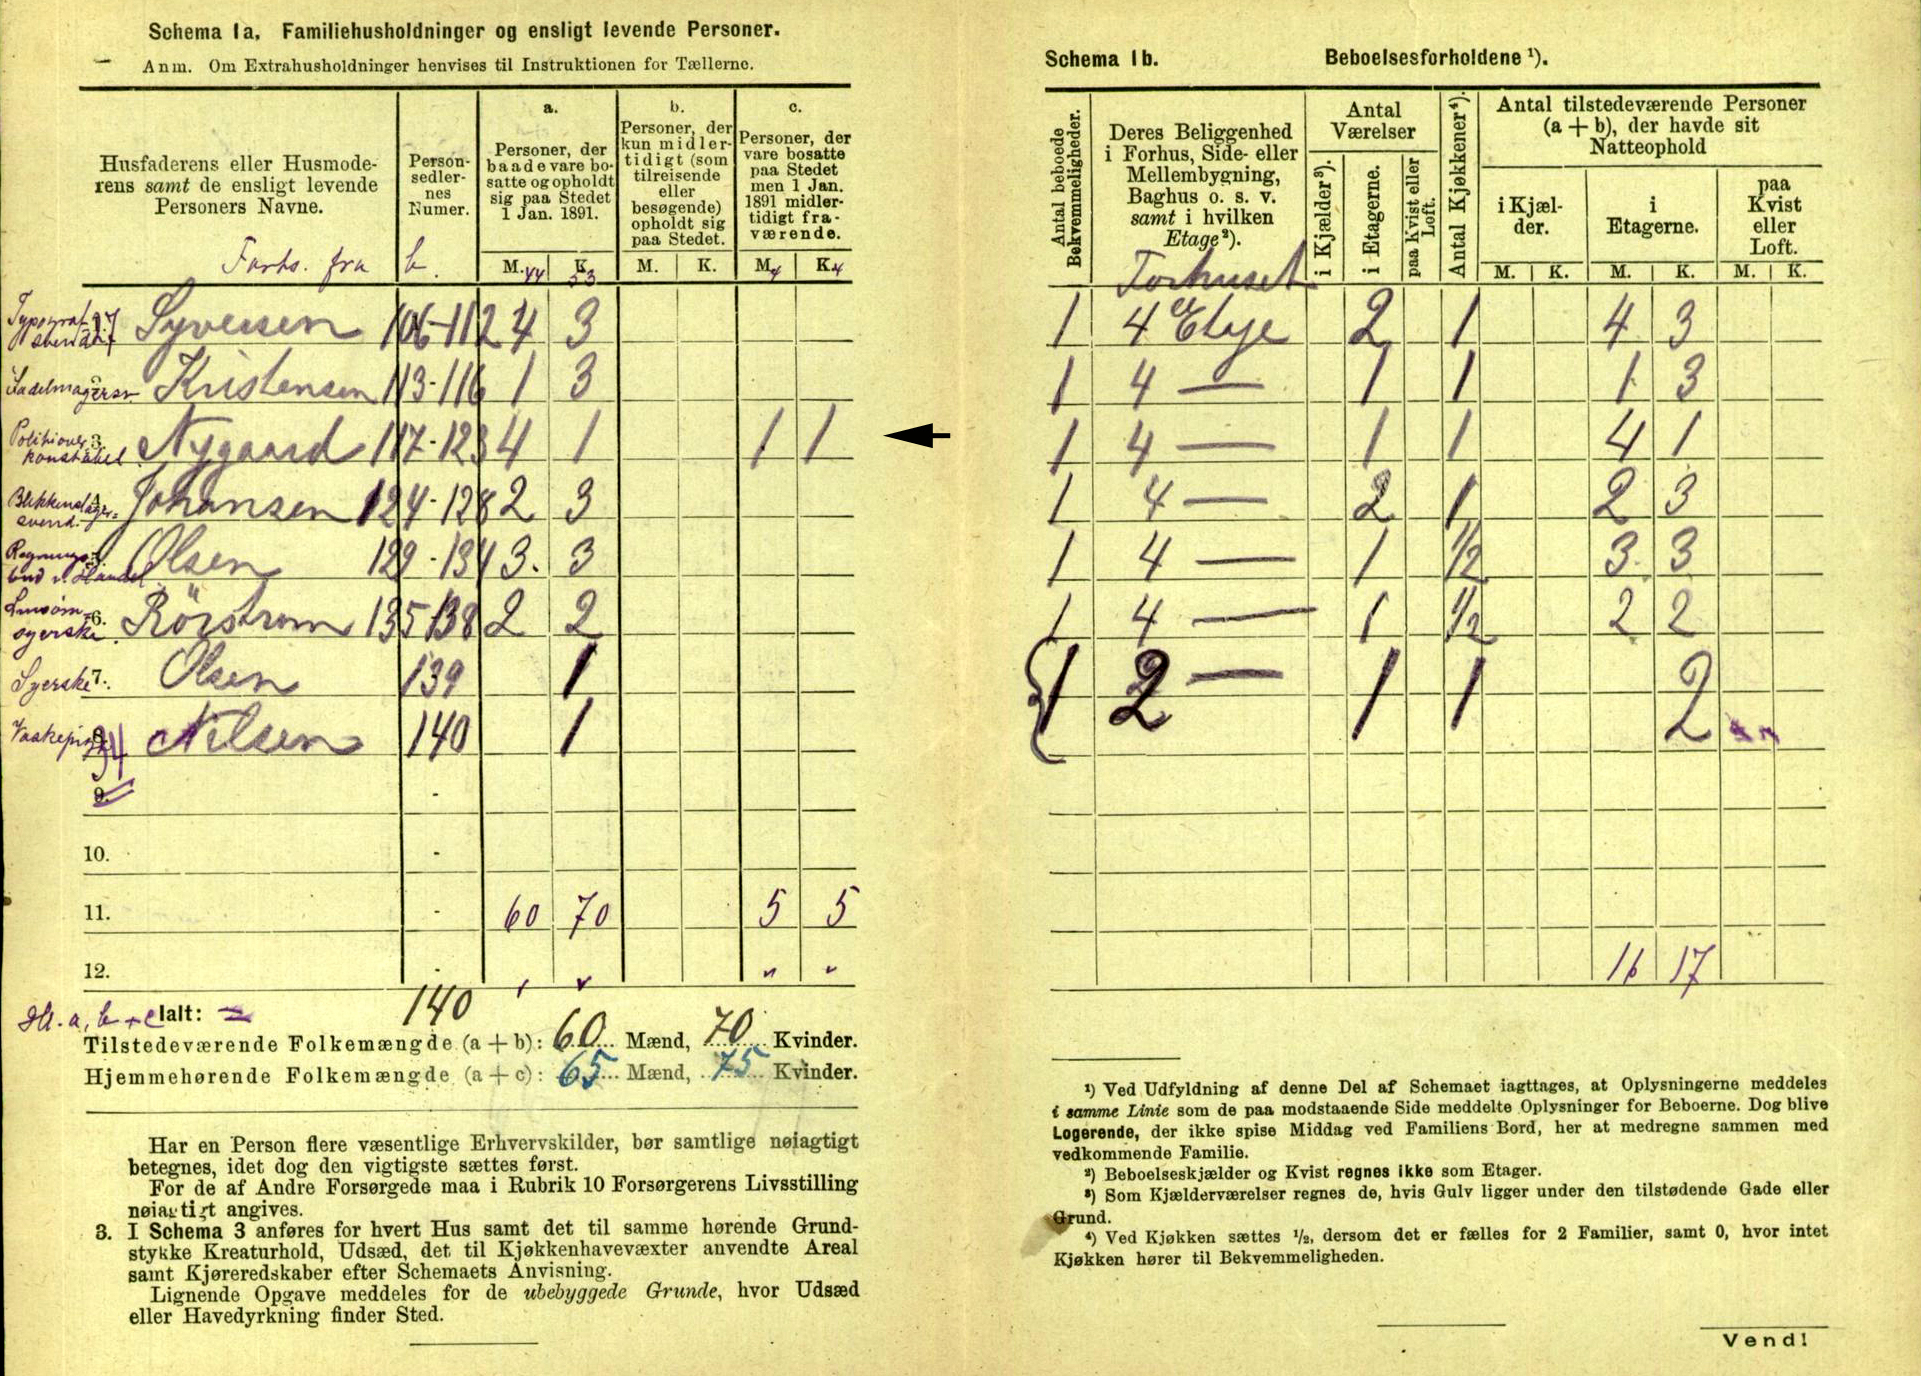 Schema 1a. Familiehusholdninger og ensligt levende Personer.
Anm. Om Extrahusholdninger henvises til Instruktionen for Tællerne.
Husfaderens eller Husmode-
rens samt de ensligt levende
Personers Navne.
Person-
sedler-
nes
Numer.
a.
Personer, der
baade vare bo-
satte og opholdt
sig paa Stedet
1 Jan. 1891.
b.
Personer, der
kun midler-
tidigt (som
tilreisende
eller
besøgende)
opholdt sig
paa Stedet.
c.
Personer, der
vare bosatte
paa Stedet
men 1 Jan.
1891 midler-
tidigt fra-
værende.
Forts. fra b. M. 44 K. 53 M. K. M. 4 K. 4
Typograf Syversen 106-112 4 3
2. Sadelmagersv. Kristensen 113-116 1 3
3. Politiover konstabel Nygaard 117-123 4 1 1 1
4. Blikkenslager- svend. Johansen 124-128 2 3
5. Regnings- bud v. Handel Olsen 129-134 3. 3
6. Linsøm- syerske Rörstrom 135-138 2 2
7. Syerske Olsen 139 1
8. Nilsen 140 1
9. -
10. -
11. - 60 70 5 5
12. -
Ialt: 140
Tilstedeværende Folkemængde (a + b): 60 Mænd, 70 Kvinder.
Hjemmehørende Folkemængde (a + c): 65 Mænd, 75 Kvinder.
Har en Person flere væsentlige Erhvervskilder, bør samtlige nøiagtigt
betegnes, idet dog den vigtigste sættes først.
For de af Andre Forsørgede maa i Rubrik 10 Forsørgerens Livsstilling
nøiagtigt angives.
3. I Schema 3 anføres for hvert Hus samt det til samme hørende Grund-
stykke Kreaturhold, Udsæd, det til Kjøkkenhavevæxter anvendte Areal
samt Kjøreredskaber efter Schemaets Anvisning.
Lignende Opgave meddeles for de ubebyggede Grunde, hvor Udsæd
eller Havedyrkning finder Sted.
Schema 1b. Beboelsesforholdene ¹).
Antal beboede
Bekvemmeligheder.
Deres Beliggenhed
i Forhus, Side- eller
Mellembygning,
Baghus o. s. v.
samt i hvilken
Etage²).
Antal
Værelser
i Kjælder³).
i Etagerne.
paa Kvist eller
Loft.
Antal Kjøkkener⁴).
Antal tilstedeværende Personer
(a + b), der havde sit
Natteophold
i Kjæl-
der.
i
Etagerne.
paa
Kvist
eller
Loft.
M. K. M. K. M. K.
Forhuset
1 4 Etage 2 1 4 3
1 4 — 1 1 1 3
1 4 — 1 1 4 1
1 4 — 2 1 2 3
1 4 — 1 1/2 3 3
1 4 — 1 1/2 2 2
1 2 — 1 1 2
16 17
¹) Ved Udfyldning af denne Del af Schemaet iagttages, at Oplysningerne meddeles
i samme Linie som de paa modstaaende Side meddelte Oplysninger for Beboerne. Dog blive
Logerende, der ikke spise Middag ved Familiens Bord, her at medregne sammen med
vedkommende Familie.
²) Beboelseskjælder og Kvist regnes ikke som Etager.
³) Som Kjælderværelser regnes de, hvis Gulv ligger under den tilstødende Gade eller
Grund.
⁴) Ved Kjøkken sættes ¹/₂, dersom det er fælles for 2 Familier, samt 0, hvor intet
Kjøkken hører til Bekvemmeligheden.
Vend!